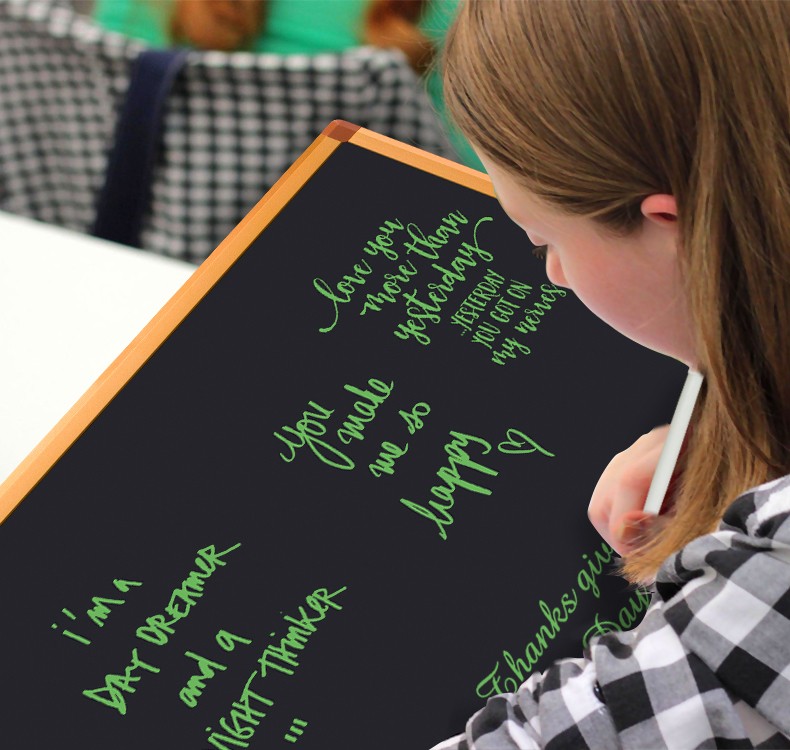 love you
more than
yesterday
...YESTERDAY
YOU GOT ON
my nerves
You
make
me so
happy ♡
i'm a
DAY DREAMER
and a
NIGHT THINKER
...
Thanks giv
Day